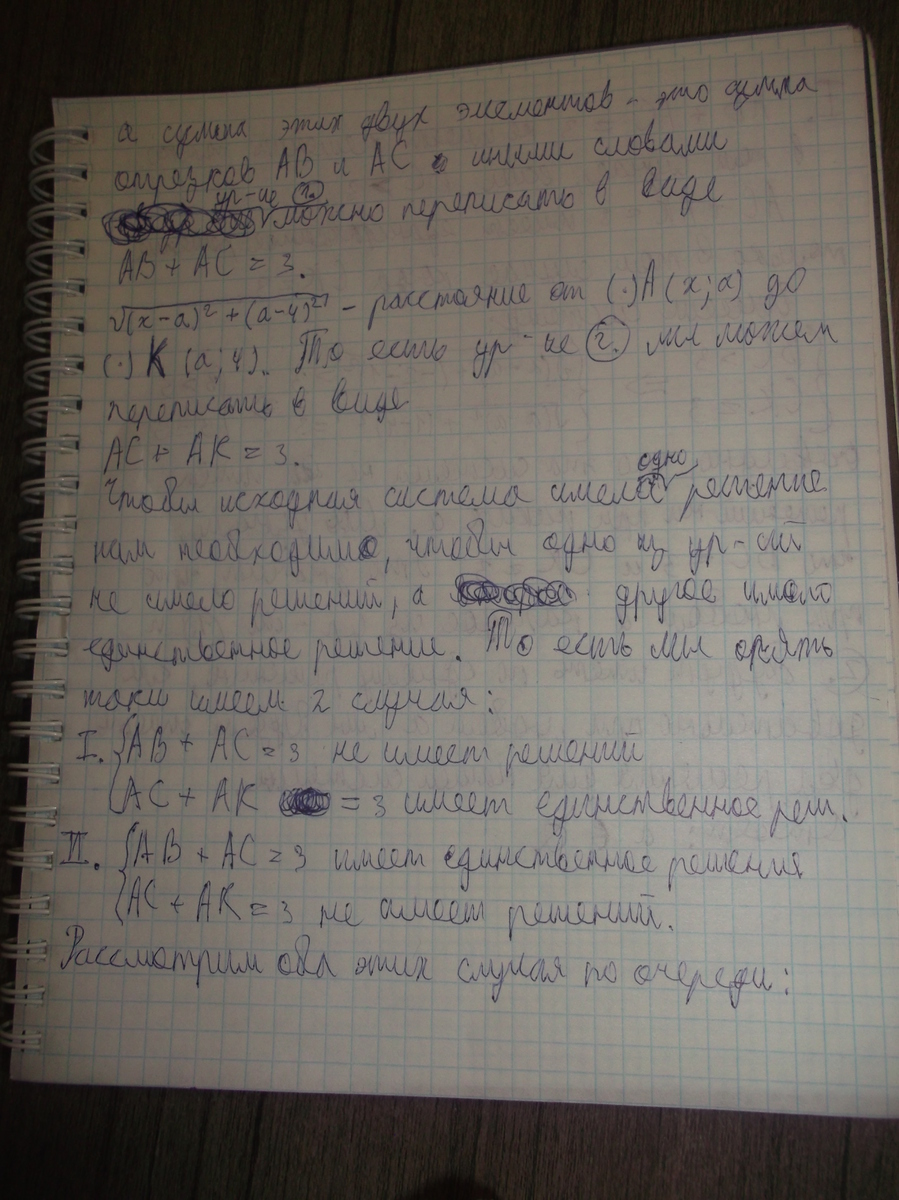 а сумма этих двух элементов - это сумма
отрезков АВ и АС иными словами
ур-не 1.
можно переписать в виде
АВ + АС = 3.
√(x-a)² + (a-4)² - расстояние от (·)A(x;a) до
(·) K (a;4). То есть ур-не 2. мы можем
переписать в виде
АС + АК = 3.
Чтобы исходная система имела одно решение
нам необходимо, чтобы одно из ур-ий
не имело решений, а другое имело
единственное решение. То есть мы опять
таки имеем 2 случая:
I. {АВ + АС = 3 не имеет решений
{АС + АК = 3 имеет единственное реш.
II. {АВ + АС = 3 имеет единственное решения
{АС + АК = 3 не имеет решений.
Рассмотрим обы этих случая по очереди: